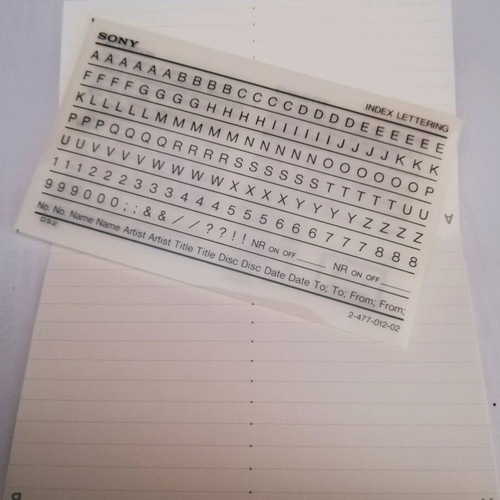 SONY
INDEX LETTERING
A A A A A A B B B B C C C C D D D D E E E E E E
F F F F G G G G H H H H I I I I I I J J J J K K K
K L L L L L M M M M M N N N N N O O O O O O P
P P P Q Q Q Q R R R R S S S S S S T T T T T U U
U U V V V V W W W W X X X X Y Y Y Y Z Z Z Z
1 1 1 2 2 2 3 3 3 4 4 4 5 5 5 6 6 6 7 7 7 8 8 8
9 9 9 0 0 0 ; ; & & / / ? ? ! ! NR ON OFF ____ NR ON OFF ____
No. No. Name Name Artist Artist Title Title Disc Disc Date Date To; To; From; From;
2-477-012-02
A